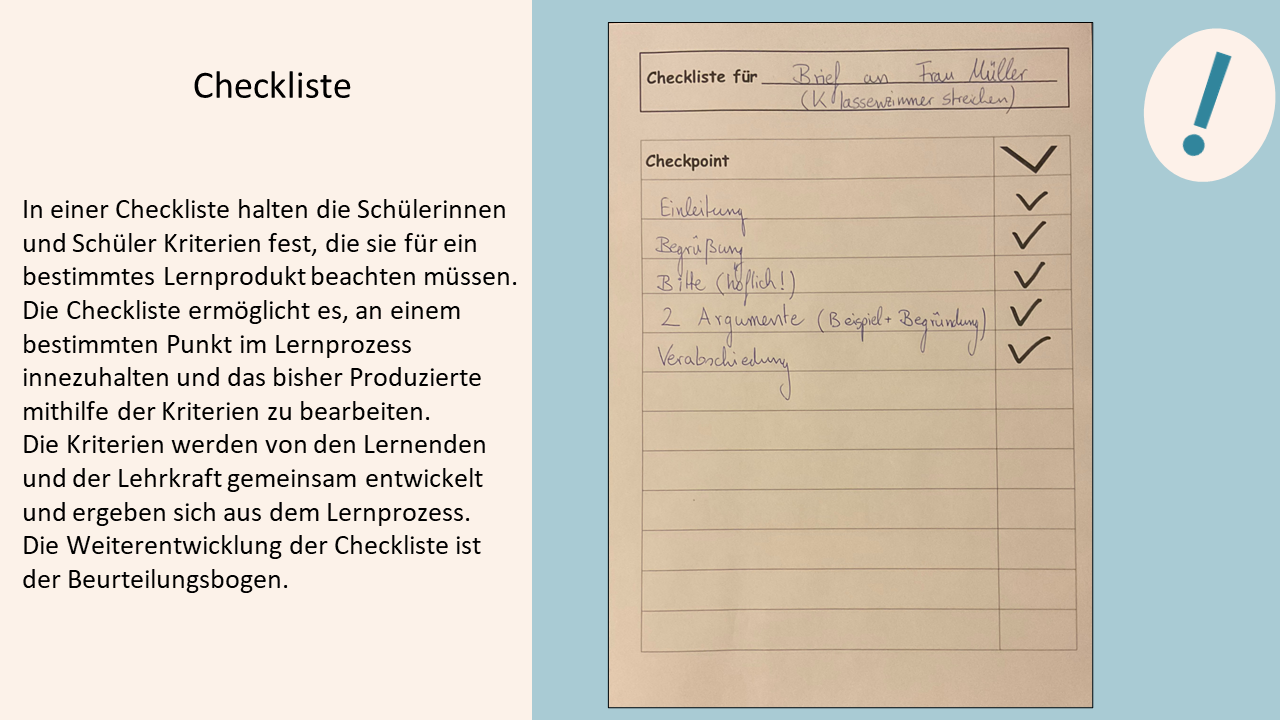 Checkliste
In einer Checkliste halten die Schülerinnen
und Schüler Kriterien fest, die sie für ein
bestimmtes Lernprodukt beachten müssen.
Die Checkliste ermöglicht es, an einem
bestimmten Punkt im Lernprozess
innezuhalten und das bisher Produzierte
mithilfe der Kriterien zu bearbeiten.
Die Kriterien werden von den Lernenden
und der Lehrkraft gemeinsam entwickelt
und ergeben sich aus dem Lernprozess.
Die Weiterentwicklung der Checkliste ist
der Beurteilungsbogen.
Checkliste für Brief an Frau Müller
(Klassenzimmer streichen)
Checkpoint ✓
Einleitung ✓
Begrüßung ✓
Bitte (höflich!) ✓
2 Argumente (Beispiel + Begründung) ✓
Verabschiedung ✓
!